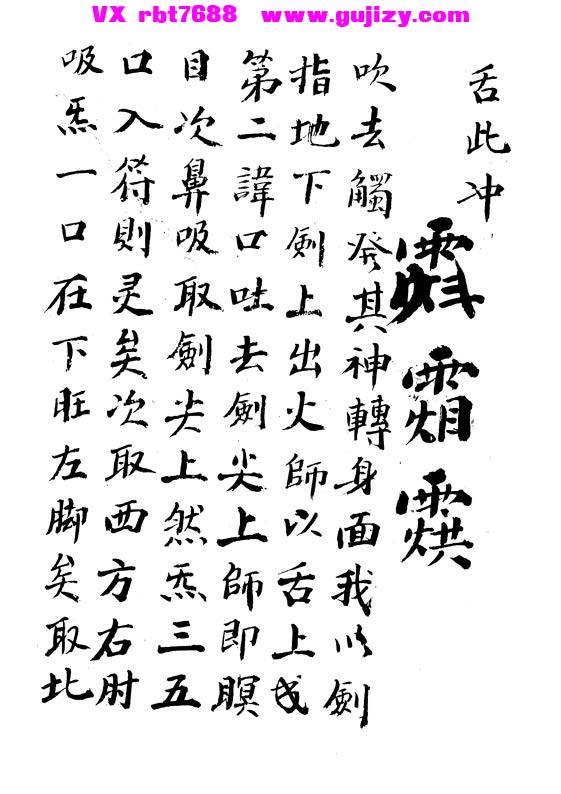 VX rbt7688    www.gujizy.com
舌此冲
吹去觸發其神轉身面我以劍
指地下劍上出火師以舌上
第二諱口吐去劍尖上師即瞑
目次鼻吸取劍尖上然炁三五
口入符則灵矣次取西方右肘
吸炁一口在下旺左脚矣取北